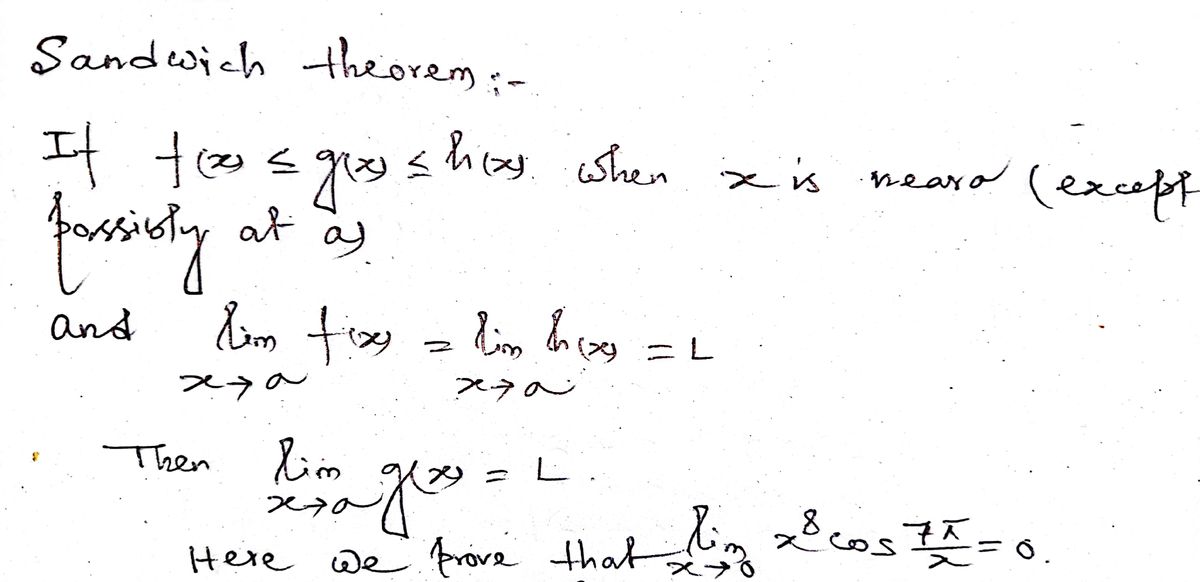 Sandwich theorem :-
If f(x) ≤ g(x) ≤ h(x). when x is near a (except
possibly at a)
and lim f(x) = lim h(x) = L
x→a x→a
Then lim g(x) = L.
x→a
Here we prove that lim x⁸ cos 7π/x = 0.
x→0